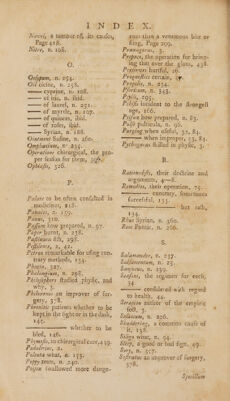 I N D E X.
Nævii, a tumor of, its causes,
Page 418.
Nitre, n. 108.
O.
Oesypum, n. 254.
Oil cicine, n. 258.
—— cyprine, n. 108.
—— of iris, n. ibid.
—— of laurel, n. 251.
—— of myrtle, n. 107.
—— of quinces, ibid.
—— of roses, ibid.
—— Syrian, n. 188.
Ointment Susine, n. 260.
Omphacium, n. 235.
Operations chirurgical, the pro-
per season for them,
Ophiasis, 326.
P.
Palate to be often consulted in
medicine, 218.
Panaces, n. 159.
Panus, 310.
Passum how prepared, n. 97.
Paper burnt, n. 238.
Pastinaca fish, 298.
Pestilence, n. 42.
Petro remarkable for using con-
trary methods, 154.
Phimus, 327.
Phalangium, n. 298.
Philosophers studied physic, and
why, 3.
Philoxenus an improver of sur-
gery, 378.
Phrenitic patients whether to be
kept in the light or in the dark,
146.
———— whether to be
bled, 146.
Plymosis, its chirurgical cure, 439.
Podalirius, 2.
Polenta what, n. 153.
Poppy tears, n. 240.
Poison swallowed more dange-
rous than a venomous bite or
sting, Page 299.
Praxagoras, 3.
Prepuce, the operation for bring-
ing that over the glans, 438.
Precocious hurtful, 26.
Prognostics certain,
Propolis, n. 234.
Psoricum, n. 348.
Ptisis, 295.
Pthisis incident to the strongest
age, 166.
Ptisan how prepared, n. 83.
Pulse publicola, n. 96.
Purging when useful, 52, 81.
——— when improper, 53, 81.
Pythagoras skilled in physic, 3.
R.
Rationalists, their doctrine and
arguments, 4—8.
Remedies, their operation, 75.
——— contrary, sometimes
successful, 133.
———— but rash,
134.
Rhus Syrian, n. 360.
Root Pontic, n. 266.
S.
Salamander, n. 237.
Salsamentum, n. 25.
Sanguines, n. 129.
Seasons, the regimen for each,
34.
——— considered with regard
to health, 44.
Serapion author of the empiric
sect, 3.
Sesamum, n. 206.
Shuddering, a common cause of
it, 138.
Siliga wheat, n. 94.
Sleep, a good or bad sign, 49.
Sory, n. 307.
Sostratus an improver of surgery,
378.
Specillum